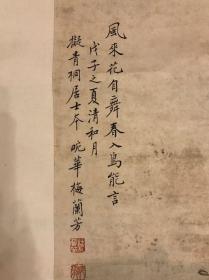 風來花自舞春入鳥能言
戊子之夏清和月
擬青桐居士本 畹華梅蘭芳